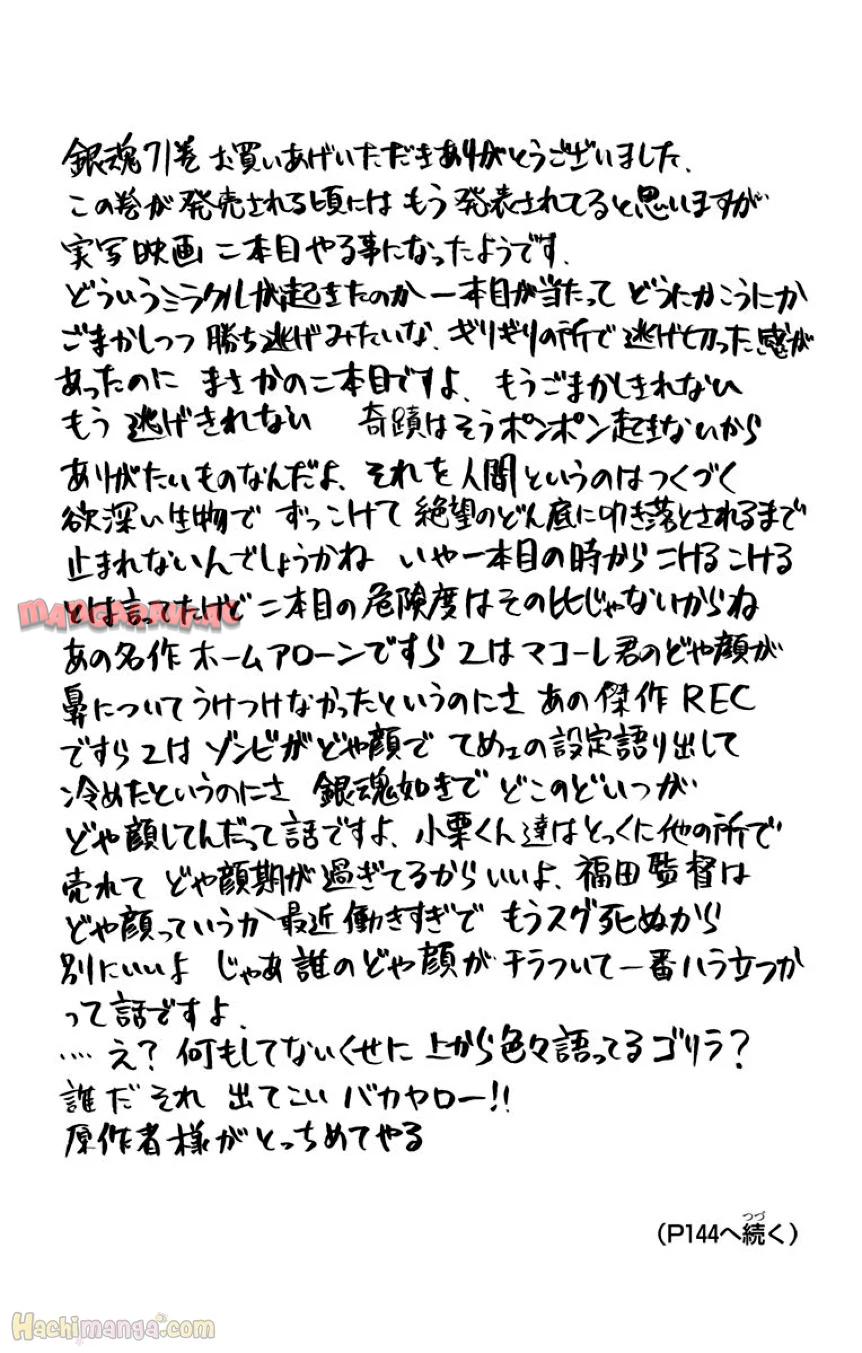 銀魂71巻お買いあげいただきありがとうございました、
この巻が発売される頃にはもう発表されてると思いますが
実写映画二本目やる事になったようです、
どういうミラクルが起きたのか一本目が当たってどうにかこうにか
ごまかしつつ勝ち逃げみたいな、ギリギリの所で逃げ切った感が
あったのにまさかの二本目ですよ、もうごまかしきれない
もう逃げきれない 奇蹟はそうポンポン起きないから
ありがたいものなんだよ、それを人間というのはつくづく
欲深い生物でずっこけて絶望のどん底に叩き落とされるまで
止まれないんでしょうかね いや一本目の時からこけるこける
とは言ってたけど二本目の危険度はその比じゃないからね
あの名作ホームアローンですら2はマコーレ君のどや顔が
鼻についてうけつけなかったというのにさ あの傑作REC
ですら2はゾンビがどや顔でてめェの設定語り出して
冷めたというのにさ 銀魂如きでどこのどいつが
どや顔してんだって話ですよ、小栗くん達はとっくに他の所で
売れてどや顔期が過ぎてるからいいよ、福田監督は
どや顔っていうか最近働きすぎでもうスグ死ぬから
別にいいよ じゃあ誰のどや顔がチラついて一番ハラ立つか
って話ですよ、
‥‥え?何もしてないくせに上から色々語ってるゴリラ?
誰だそれ 出てこいバカヤロー!!
原作者様がとっちめてやる
(P144へ続く)
つづ
Hachimanga.com